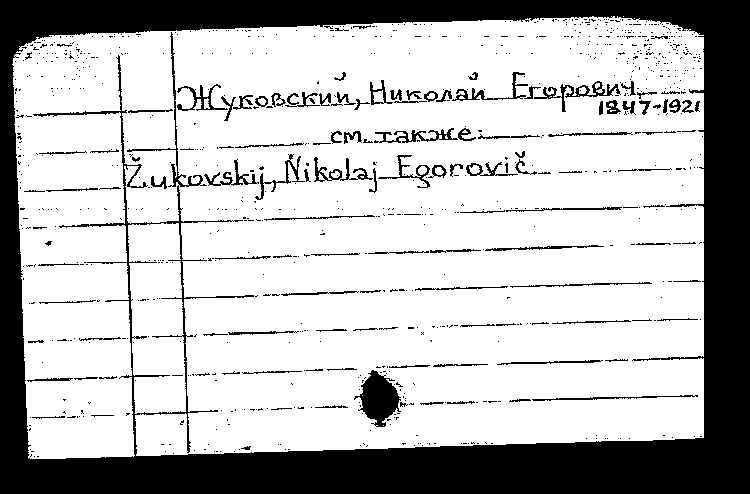 Жуковский, Николай Егорович,
1847-1921
см. также:
Žukovskij, Nikolaj Egorovič.